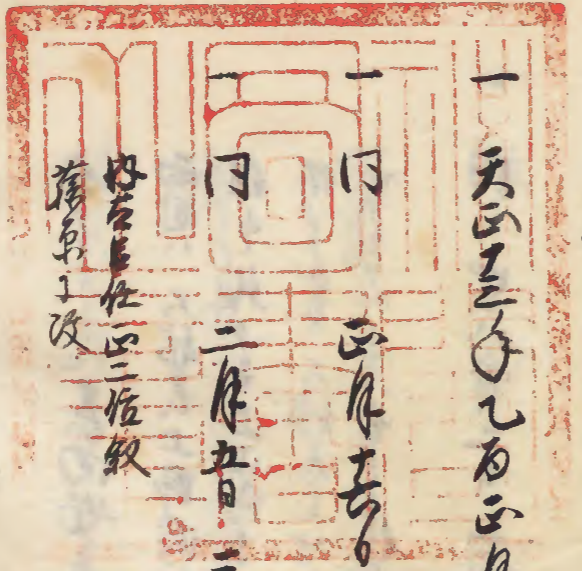 一 天正十三年乙酉正月
一 同 正月十六日
一 同 二月五日 二
内大臣任正二位叙
藤原ニ改